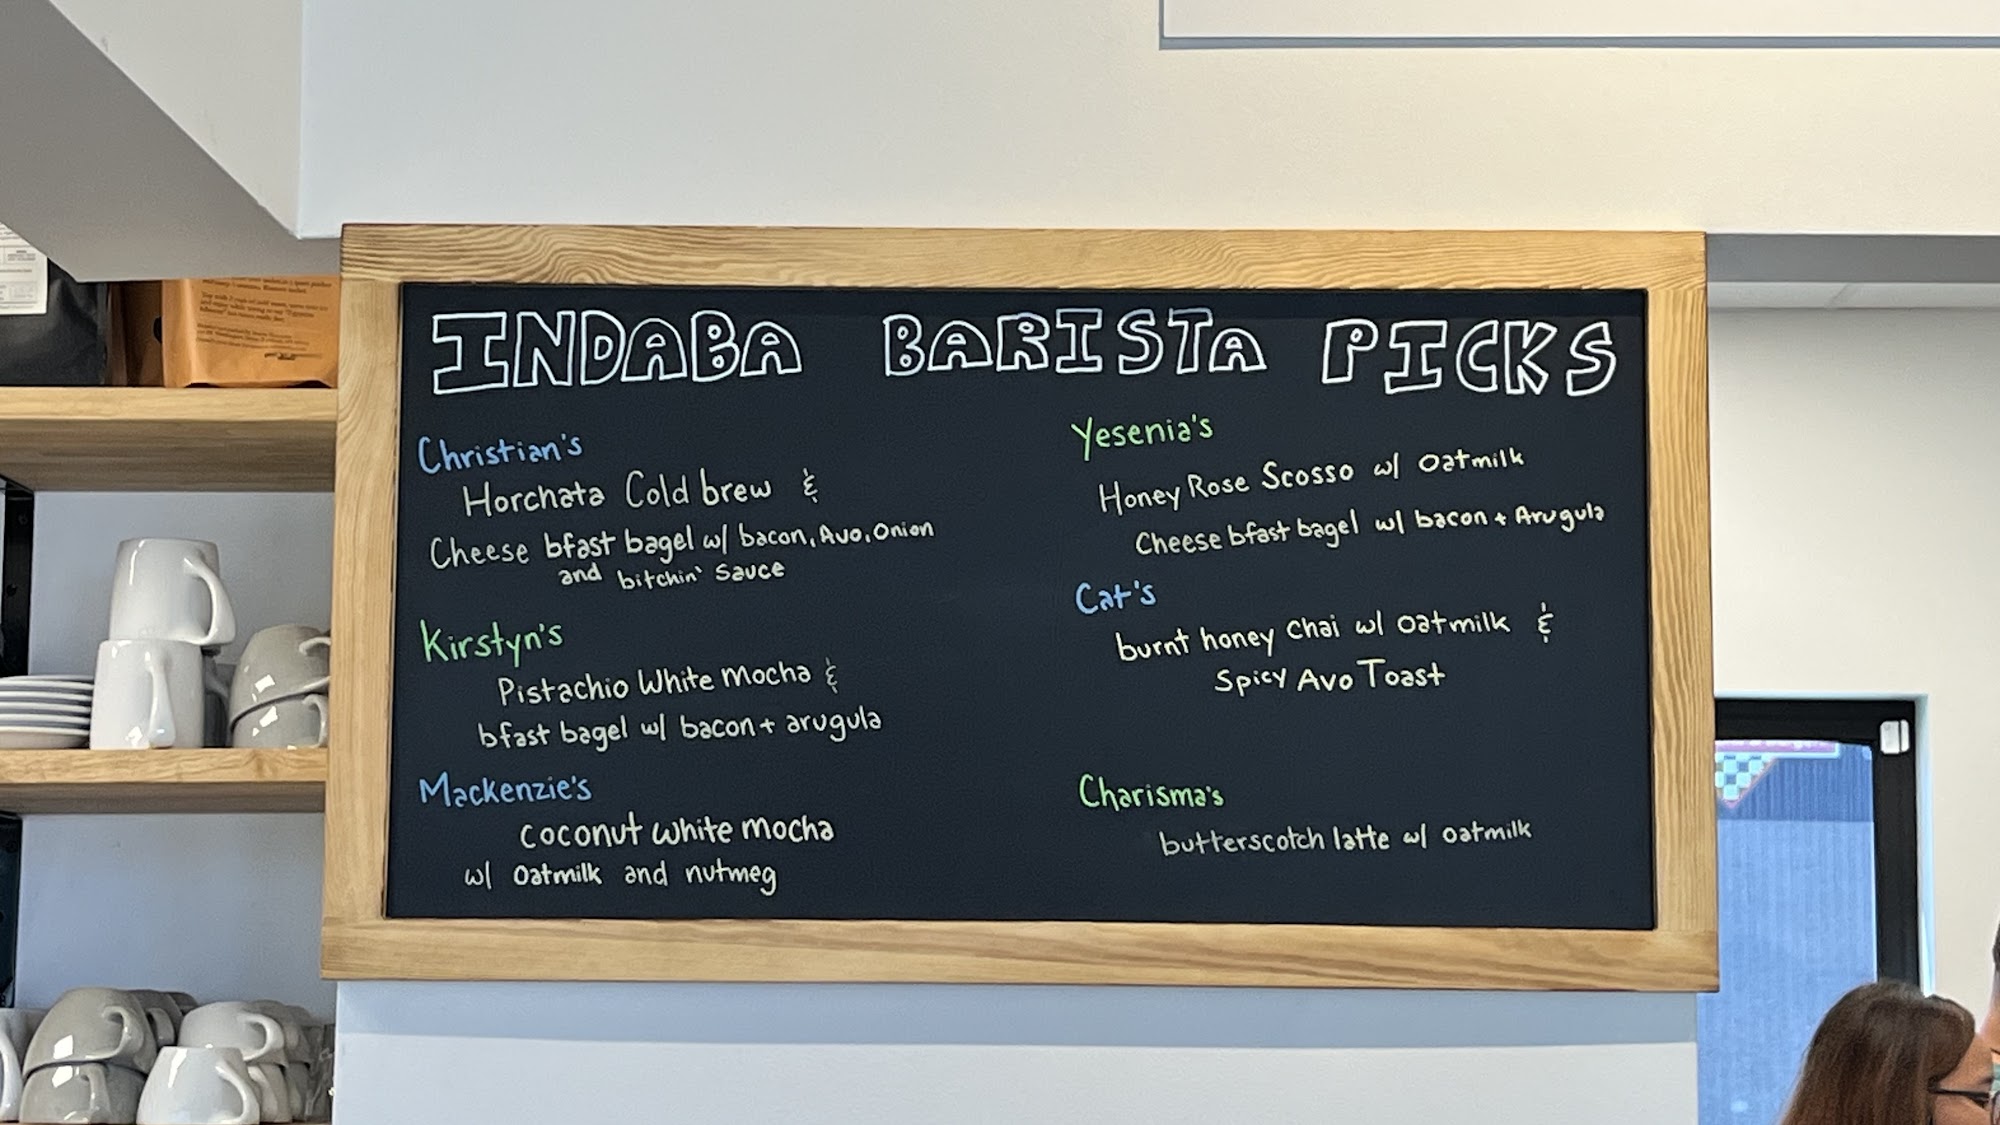 INDABA BARISTA PICKS
Christian's
Horchata Cold brew &
Cheese bfast bagel w/ bacon, Avo, Onion
and bitchin' Sauce
Kirstyn's
Pistachio White Mocha &
bfast bagel w/ bacon + arugula
Mackenzie's
coconut white mocha
w/ oatmilk and nutmeg
Yesenia's
Honey Rose Scosso w/ oatmilk
Cheese bfast bagel w/ bacon + Arugula
Cat's
burnt honey chai w/ oatmilk &
Spicy Avo Toast
Charisma's
butterscotch latte w/ oatmilk